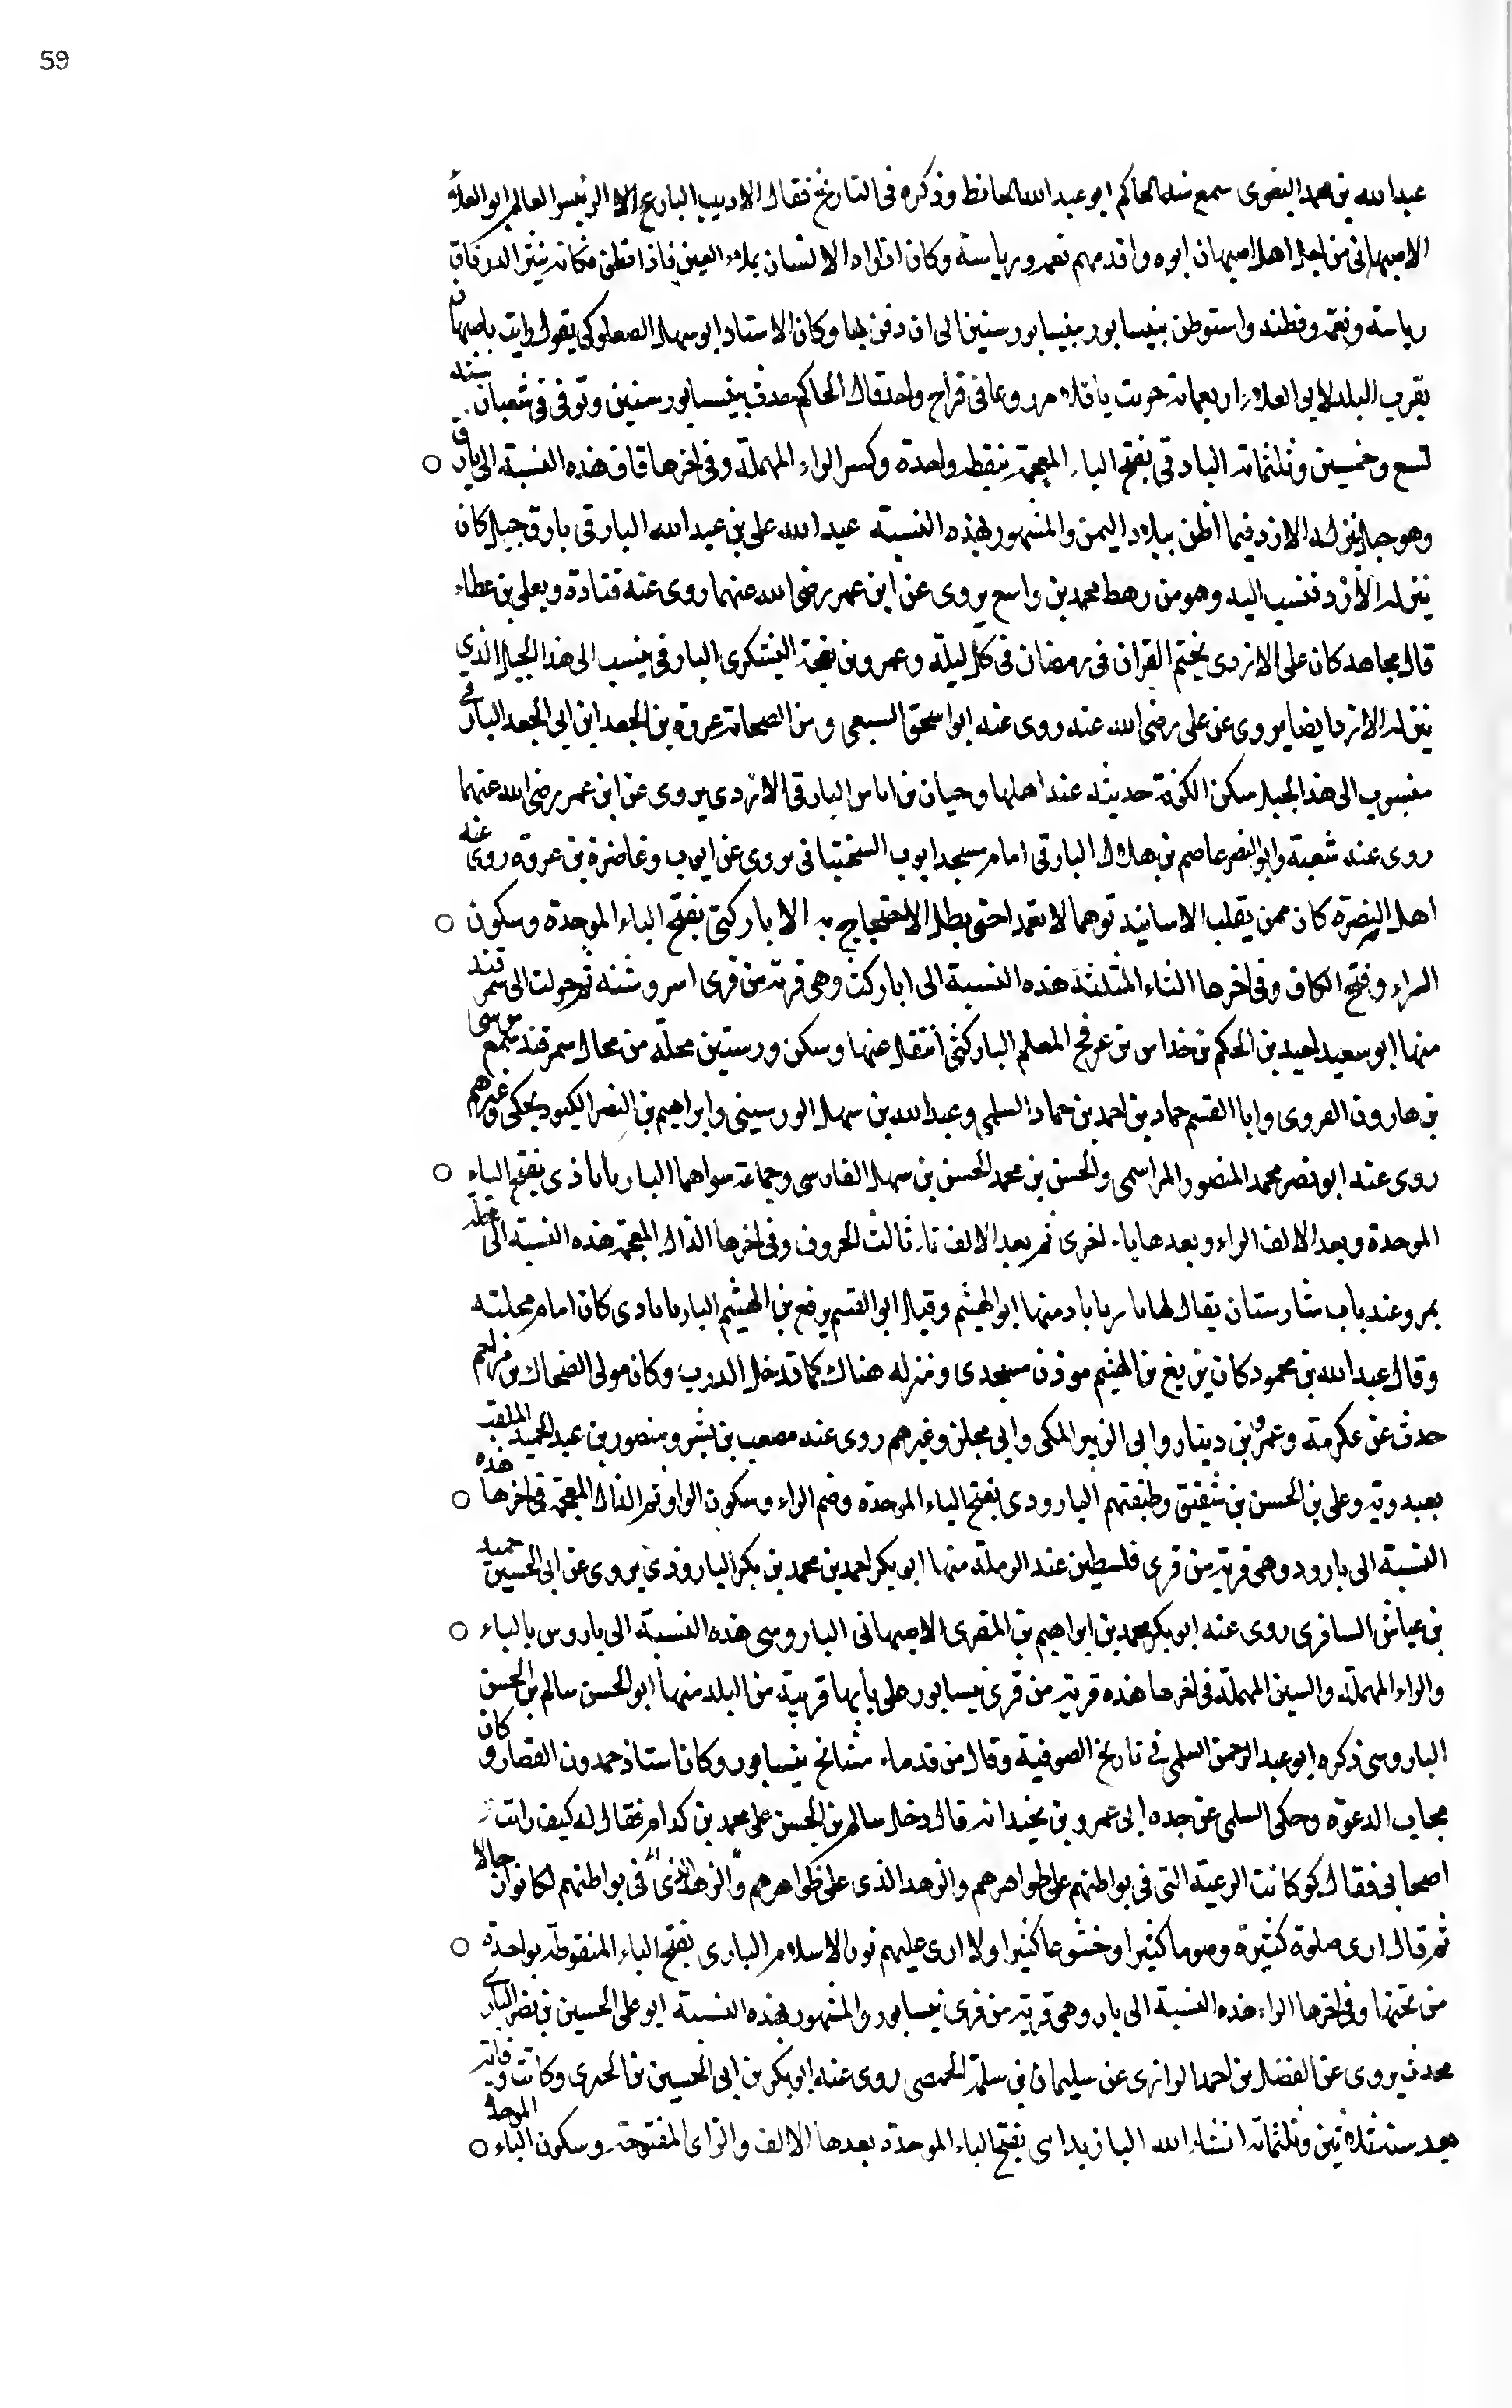 59
عبدالله بن محمد البغوى سمع منه الحاكم ابو عبدالله الحافظ وذكره فى التاريخ فقال الاديب البارع الرئيس العالم ابو العلاء
الاصبهانى من اجل اهل اصبهان ابوه واقدمهم نعمة ورياسة وكان اذا راه الانسان يملاء العين فاذا نطق فكانه ينثر الدر فاق
رياسة ونعمة وفطنه واستوطن بنيسابور بنيسابور سنين الى ان دفن بها وكان الاستاد ابو سهل الصعلوكى يقول رايت باصبهان
بقرب البلد لابى العلاء اربعماية جريت باقلاء مزروعا فى قراح واحد قال الحاكم حدث بنيسابور سنين وتوفى فى شعبان سنه
تسع وخمسين وثلثماية البارقى بفتح الباء المعجمة بنقطة واحدة وكسر الراء المهملة وفى اخرها قاف هذه النسبة الى بارق ○
وهو جبل ينزله الازد فيما اظن ببلاد اليمن والمشهور بهذه النسبة عبدالله على بن عبدالله البارقى بارق جبل كان
ينزله الازد فنسب اليه وهو من رهط محمد بن واسع يروى عن ابن عمر رضى الله عنهما روى عنه قتادة ويعلى بن عطاء
قال مجاهد كان على الازدى يختم القران فى رمضان فى كل ليلة وعمرو بن اليشكرى البارقى ينسب الى هذا الجبل الذي
ينزله الازد ايضا يروى عن على رضى الله عنه روى عنه ابو اسحق السبيعى ومن الصحابة عروة بن الجعد ابن ابى الجعد البارقى
منسوب الى هذا الجبل سكن الكوفة حديثه عند اهلها وحيان بن اياس البارقى الازدى يروى عن ابن عمر رضى الله عنهما
روى عنه شعبة وابو النضر عاصم بن هلال البارقى امام مسجد ايوب السختيانى يروى عن ايوب وغاضرة بن عروة روى عنه
اهل البصرة كان ممن يقلب الاسانيد توهما لا تعمدا حتى بطل الاحتجاج به الاباركثى بفتح الباء الموحدة وسكون ○
الراء وفتح الكاف وفى اخرها الثاء المثلثة هذه النسبة الى اباركث وهى قرية من قرى اسروشنه ثم حولت الى سمرقند
منها ابو سعيد احيد بن الحكم بن خداس بن عرفج المعلم الباركثى انتقل عنها وسكن ورسنين محلة من محال سمرقند سمع موسى
بن هارون الفروى وابا القسم حماد بن احمد بن حماد السلمى وعبدالله بن سهل الورسينى وابراهيم بن النصر الكبود وغيرهم
روى عنه ابو نصر محمد المنصور المراسمى والحسن بن محمد الحسن بن سهل الفارسى وجماعة سواهما الباريابادى بفتح الباء ○
الموحدة وبعد الالف الراء وبعدها ياء اخرى ثم بعد الالف ثالث الحروف وفى اخرها الذال المعجمة هذه النسبة الى محلة
بمرو عند باب شارستان يقال لها باريا باد منها ابو الهيثم وقيل ابو القسم بن الهيثم الباريابادى كان امام محلته
وقال عبدالله بن محمود كان بن الهيثم موذن مسجدى ومنزله هناك كما تدخل الدرب وكان مولى الضحاك بن مزاحم
حدث عن عكرمة وعمرو بن دينار وابى الزبير المكى وابى مجلز وغيرهم روى عنه مصعب بن بشر ومنصور بن عبد الحميد الملقب
بعبدويه وعلى بن الحسن بن شقيق وطبقتهم البارودى بفتح الباء الموحدة وضم الراء وسكون الواو ثم الذال المعجمة فى اخرها هذه ○
النسبة الى بارود وهى قرية من قرى فلسطين عند الرملة منها ابو بكر احمد بن محمد بن بكر البارودى يروى عن ابى الحسين حميد
بن عياش السافرى روى عنه ابو بكر محمد بن ابراهيم بن المقرى الاصبهانى الباروسى هذه النسبة الى باروس بالباء ○
والراء المهملة والسين المهملة فى اخرها هذه قرية من قرى نيسابور على بابها قريبة من البلد منها ابو الحسن سالم بن الحسن
الباروسى ذكره ابو عبد الرحمن السلمى فى تاريخ الصوفية وقال من قدماء مشائخ نيسابور وكان استاذ حمدون القصار وكان
مجاب الدعوة وحكى السلمى عن جده ابى عمرو بن نجيد انه قال دخل سالم بن الحسن على محمد بن كدام فقال له كيف رايت
اصحابى فقال لو كانت الرغبة التى فى بواطنهم على ظواهرهم والزهد الذى على ظواهرهم والزهد الذى فى بواطنهم لكانوا رجالا
ثم قال ارى صلوة كثيرة وصوما كثيرا وخشوعا كثيرا ولا ارى عليهم نور الاسلام البارى بفتح الباء المنقوطة بواحدة ○
من تحتها وفى اخرها الراء هذه النسبة الى بار وهى قرية من قرى نيسابور والمشهور بهذه النسبة ابو على الحسين بن نصر البارى
محدث يروى عن الفضل بن احمد الرازى عن سليمان بن سلمة الحمصى روى عنه ابو بكر بن ابى الحسين بن الحيرى وكانت وفاته
بعد سنة ثلاثين وثلثماية انشاء الله البازبداسى بفتح الباء الموحدة بعدها الالف والزاى المفتوحة وسكون الباء الموحدة ○